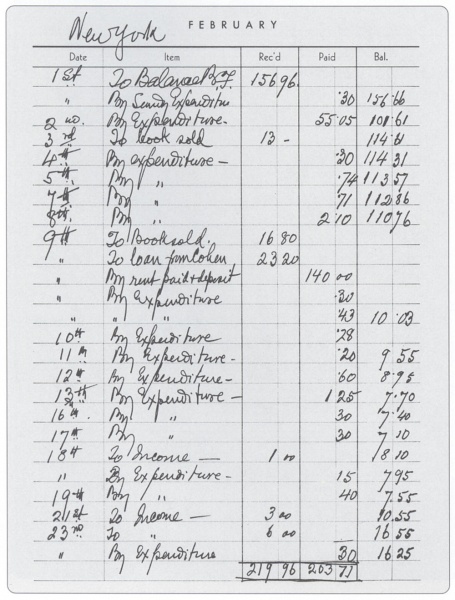 FEBRUARY
New York
Date Item Rec'd Paid Bal.
1st To Balance B.F. 156 96.
" By Sundry Expenditure .30 156.66
2nd. By Expenditure- 55.05 101.61
3rd To book sold 13 - 114.61
4th By expenditure- .30 114.31
5th By " .74 113.57
7th By " .71 112.86
8th. By " 2.10 110.76
9th To Book sold. 16 80
" To loan from Cohen 23 20
" By rent paid & deposit 140 00
" By Expenditure .30
" " " .43 10.03
10th By Expenditure .28
11th By Expenditure- .20 9.55
12th By Expenditure- .60 8.95
13th By Expenditure- 1 25 7.70
16th. By " 30 7.40
17th By " 30 7.10
18th To Income- 1 00 8.10
" By Expenditure- 15 7.95
19th By " 40 7.55
21st To Income- 3 00 10.55
23rd To " 6 00 16.55
" By Expenditure 30 16.25
219 96 203 71